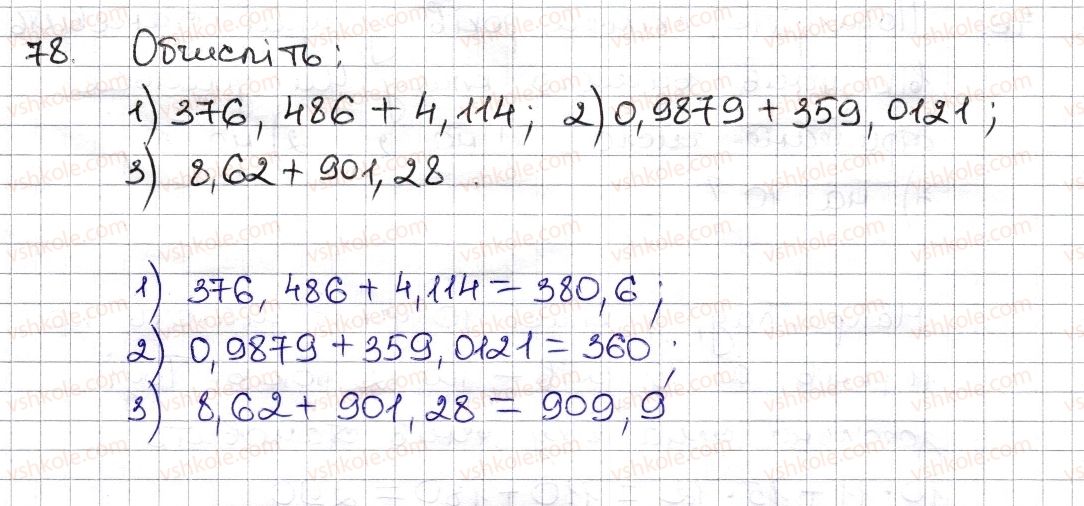 78. Обчисліть:
1) 376,486 + 4,114; 2) 0,9879 + 359,0121;
3) 8,62 + 901,28.
1) 376,486 + 4,114 = 380,6;
2) 0,9879 + 359,0121 = 360;
3) 8,62 + 901,28 = 909,9